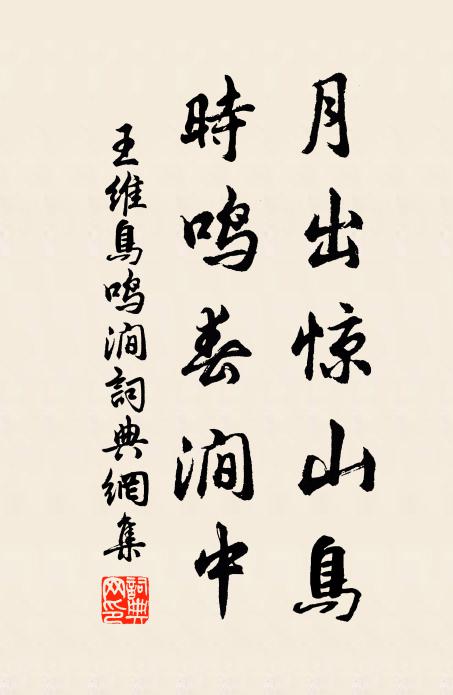 月出惊山鳥
時鸣春澗中
王维鳥鸣澗詞典網集
詞典
网印